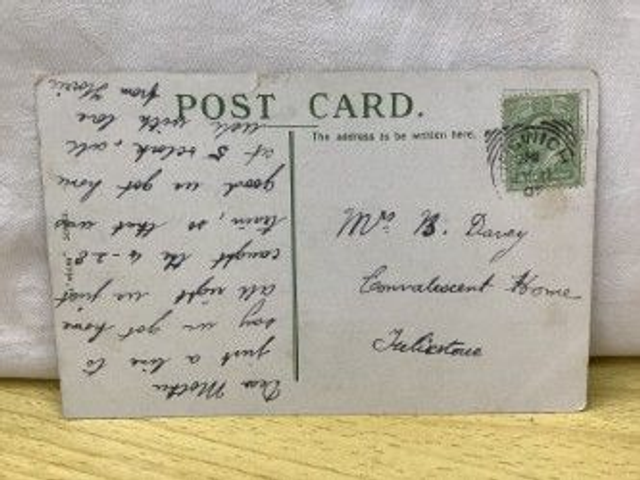 POST CARD.
The address to be written here.
Mrs B. Davey
Convalescent Home
Felixstowe
Dear Mother
Just a line to
say we got home
all right we just
caught the 4-28
train, so that was
good we got home
at 5 o'clock, all
well with love
from Florrie